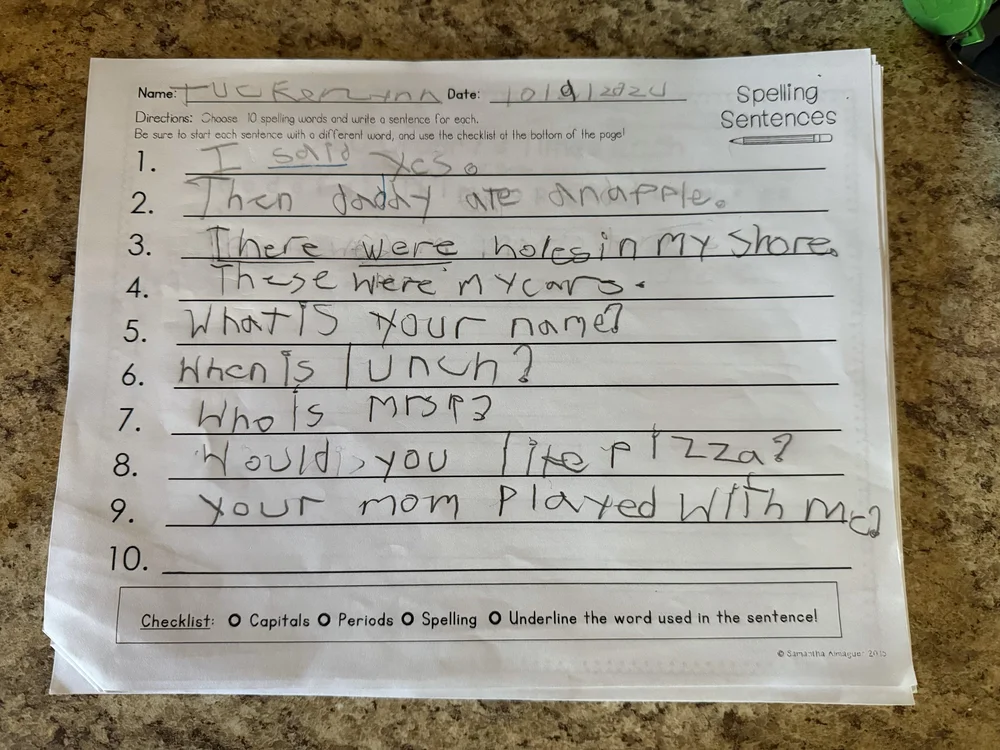 Name: Tuckerlynn Date: 10/9/2024
Spelling
Sentences
Directions: Choose 10 spelling words and write a sentence for each.
Be sure to start each sentence with a different word, and use the checklist at the bottom of the page!
1. I said yes.
2. Then daddy ate an apple.
3. There were holes in my shore.
4. These were my cars.
5. What is your name?
6. When is lunch?
7. Who is mrs P?
8. Would you like pizza?
9. Your mom played with me?
10.
Checklist: O Capitals O Periods O Spelling O Underline the word used in the sentence!
© Samantha Almaguer 2015